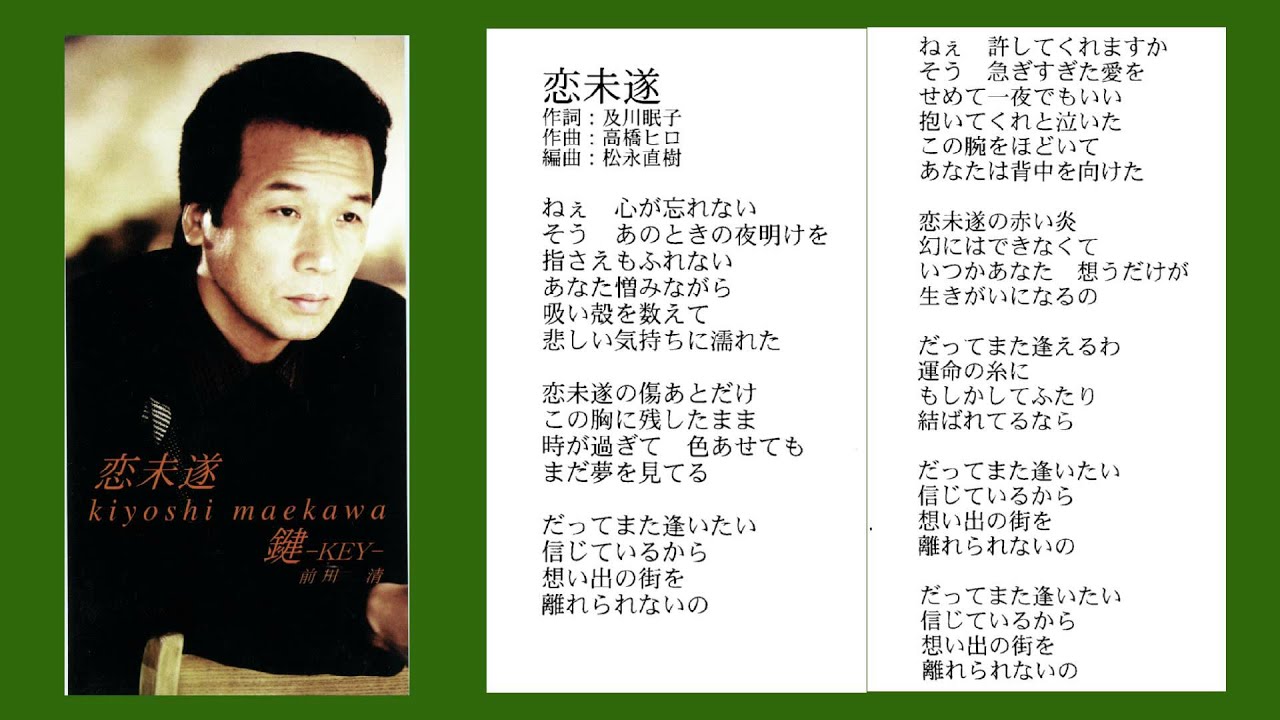 恋未遂
kiyoshi maekawa
鍵-KEY-
前川 清
恋未遂
作詞：及川眠子
作曲：高橋ヒロ
編曲：松永直樹
ねぇ　心が忘れない
そう　あのときの夜明けを
指さえもふれない
あなた憎みながら
吸い殻を数えて
悲しい気持ちに濡れた
恋未遂の傷あとだけ
この胸に残したまま
時が過ぎて　色あせても
まだ夢を見てる
だってまた逢いたい
信じているから
想い出の街を
離れられないの
ねぇ　許してくれますか
そう　急ぎすぎた愛を
せめて一夜でもいい
抱いてくれと泣いた
この腕をほどいて
あなたは背中を向けた
恋未遂の赤い炎
幻にはできなくて
いつかあなた　想うだけが
生きがいになるの
だってまた逢えるわ
運命の糸に
もしかしてふたり
結ばれてるなら
だってまた逢いたい
信じているから
想い出の街を
離れられないの
だってまた逢いたい
信じているから
想い出の街を
離れられないの